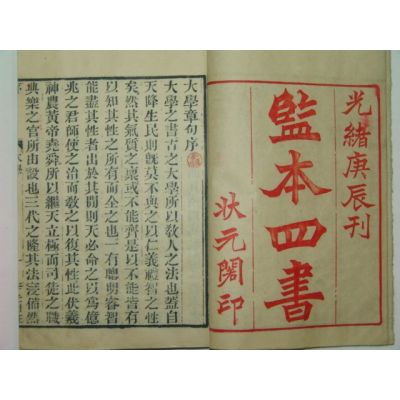 光緒庚辰刊
監本四書
狀元閣印
大學章句序
大學之書古之大學所以敎人之法也蓋自
天降生民則旣莫不與之以仁義禮智之性
矣然其氣質之稟或不能齊是以不能皆有
以知其性之所有而全之也一有聰明睿智
能盡其性者出於其間則天必命之以爲億
兆之君師使之治而敎之以復其性此伏羲
神農黃帝堯舜所以繼天立極而司徒之職
典樂之官所由設也三代之隆其法寖備然